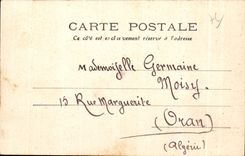 CARTE POSTALE
Ce côté est exclusivement réservé à l'adresse
Mademoiselle Germaine
Moisy
15 Rue Marguerite
(Oran)
(Algérie)